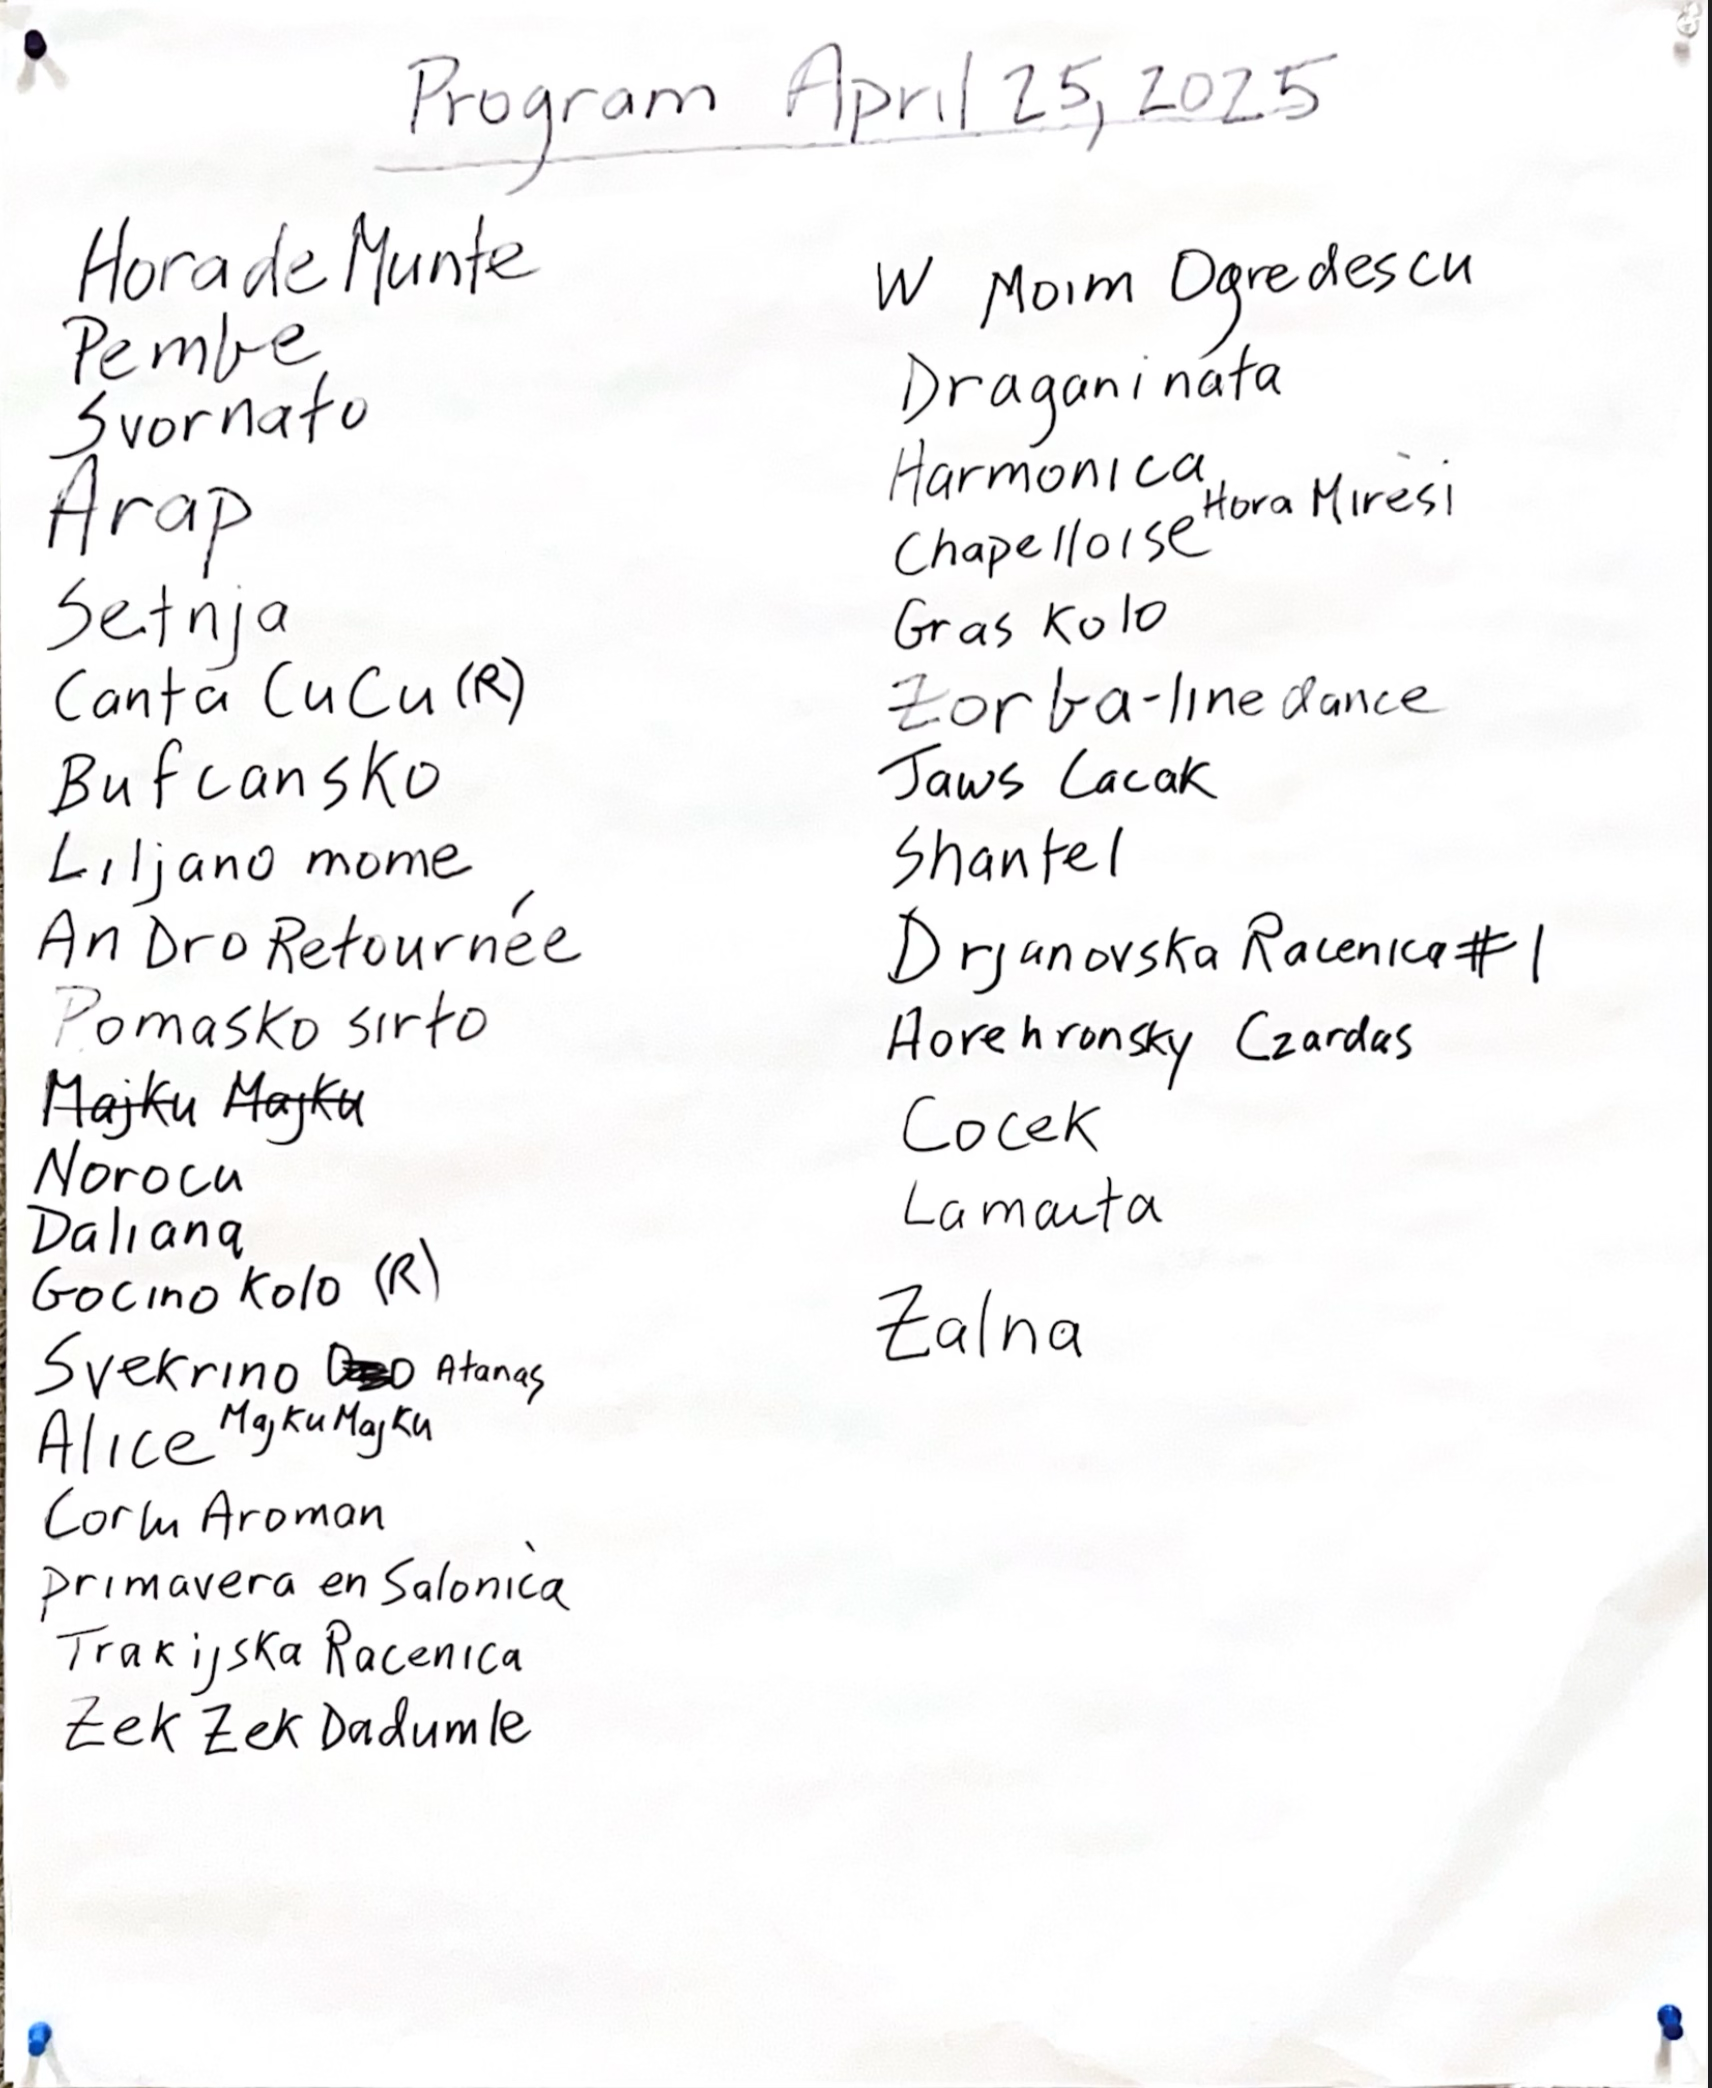 Program April 25, 2025
Hora de Munte
Pembe
Svornato
Arap
Setnja
Canta CuCu (R)
Bufcansko
Liljano mome
An Dro Retournée
Pomasko sirto
Majku Majku
Norocu
Daliana
Gocino Kolo (R)
Svekrino Atanas
Alice Majku Majku
Corlu Aroman
primavera en Salonica
Trakijska Racenica
Zek Zek Dadumle
W Moim Ogredescu
Draganinata
Harmonica
Hora Miresi
Chapelloise
Gras Kolo
Zorba-line dance
Jaws Cacak
Shantel
Drjanovska Racenica #1
Horehronsky Czardas
Cocek
Lamaita
Zalna